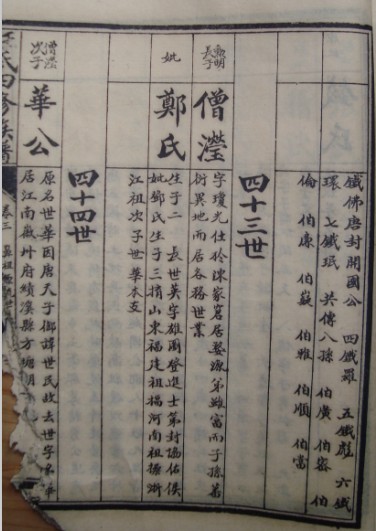 鐵佛唐封開國公 四鐵羅 五鐵彪 六鐵
環 七鐵珉 共傳八孫 伯廣 伯容 伯
倫 伯康 伯嶷 伯雅 伯順 伯當
四十三世
長子 僧瀅
字瓊光仕於陳家居婺源第雖富而子孫蕃
衍異地而居各務世業
妣 鄭氏
生子二 長世英字雄爾登進士第封協佑侯
妣鄧氏生子三揹山東福建祖揭河南祖操浙
江祖次子世華本支
四十四世
僧瀅次子 華公
原名世華因唐天子御諱世民故去世字名華
居江南徽州府績溪縣方塘明
氏四修族譜
卷三